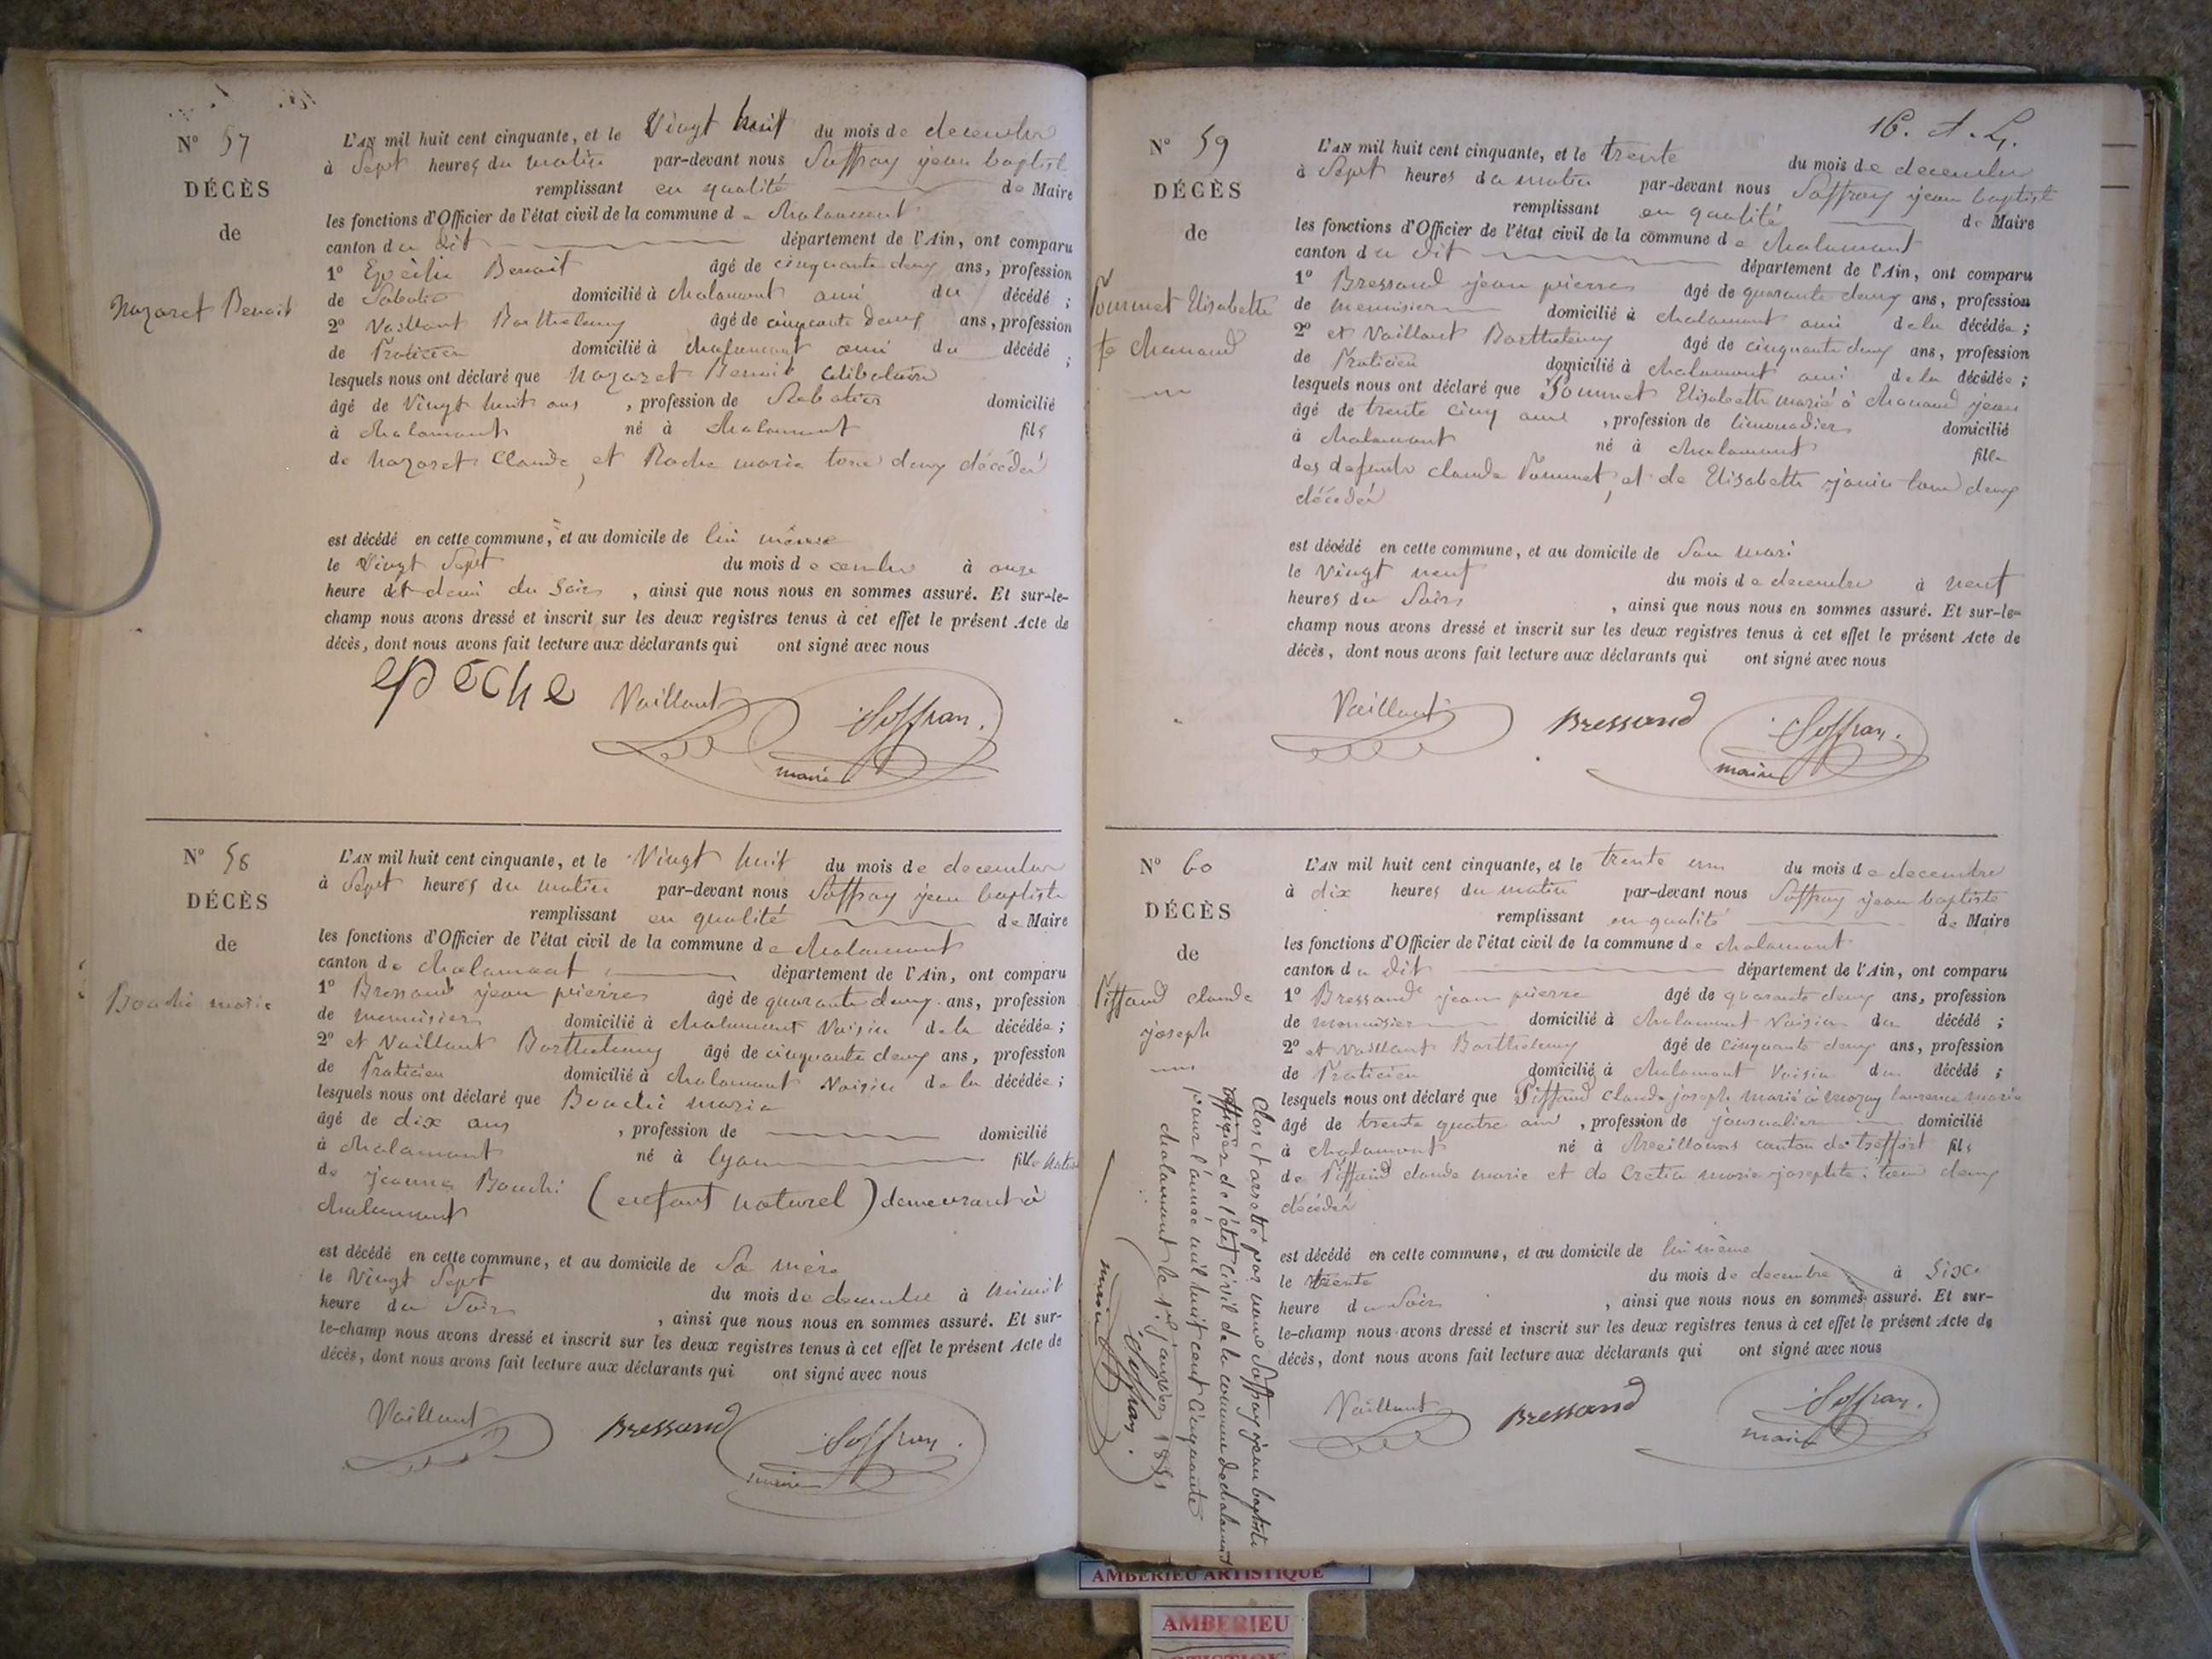 N° 57
DÉCÈS
de
Nazaret Benoit
L'AN mil huit cent cinquante, et le Vingt huit du mois de decembre
à Sept heures du matin par-devant nous Saffray jean baptist
remplissant en qualité de Maire
les fonctions d'Officier de l'état civil de la commune de chalamont
canton du dit département de l'Ain, ont comparu
1° Benoit âgé de cinquante deux ans, profession
de Sabotier domicilié à chalamont ami du décédé ;
2° Vaillant Barthelemy âgé de cinquante deux ans, profession
de Praticien domicilié à chalamont ami du décédé ;
lesquels nous ont déclaré que Nazaret Benoit celibataire
âgé de Vingt huit ans , profession de Sabotier domicilié
à chalamont né à chalamont fils
de Nazaret Claude, et Roche marie tous deux décédé
est décédé en cette commune, et au domicile de lui même
le Vingt Sept du mois decembre à onze
heure et demi du Soir , ainsi que nous nous en sommes assuré. Et sur-le-
champ nous avons dressé et inscrit sur les deux registres tenus à cet effet le présent Acte de
décès, dont nous avons fait lecture aux déclarants qui ont signé avec nous
Vaillant Soffray.
maire
N° 58
DÉCÈS
de
Bouchi marie
L'AN mil huit cent cinquante, et le Vingt huit du mois de decembre
à Sept heures du matin par-devant nous Saffray jean baptiste
remplissant en qualité de Maire
les fonctions d'Officier de l'état civil de la commune de chalamont
canton de chalamont département de l'Ain, ont comparu
1° Bressand jean pierre âgé de quarante deux ans, profession
de menuisier domicilié à chalamont Voisin de la décédée ;
2° et Vaillant Barthelemy âgé de cinquante deux ans, profession
de Praticien domicilié à chalamont Voisin de la décédée ;
lesquels nous ont déclaré que Bouchi marie
âgé de dix ans , profession de domicilié
à chalamont né à lyon fille
de jeanne Bouchi (enfant naturel) demeurant à
chalamont
est décédé en cette commune, et au domicile de Sa mère
le Vingt Sept du mois de decembre à minuit
heure du Soir , ainsi que nous nous en sommes assuré. Et sur-
le-champ nous avons dressé et inscrit sur les deux registres tenus à cet effet le présent Acte de
décès, dont nous avons fait lecture aux déclarants qui ont signé avec nous
Vaillant Bressand Soffray.
maire
16.
N° 59
DÉCÈS
de
Pommet Elisabette
fe Chanaud
L'AN mil huit cent cinquante, et le trente du mois de decembre
à Sept heures du matin par-devant nous Saffray jean baptist
remplissant en qualité de Maire
les fonctions d'Officier de l'état civil de la commune de chalamont
canton du dit département de l'Ain, ont comparu
1° Bressand jean pierre âgé de quarante deux ans, profession
de menuisier domicilié à chalamont ami de la décédée ;
2° et Vaillant Barthelemy âgé de cinquante deux ans, profession
de Praticien domicilié à chalamont ami de la décédée ;
lesquels nous ont déclaré que Pommet Elisabeth marié à Chanaud jean
âgé de trente cinq ans , profession de limonadier domicilié
à chalamont né à chalamont fille
des defunts claude Pommet, et de Elisabeth janin tous deux
décédé
est décédé en cette commune, et au domicile de Son mari
le Vingt neuf du mois de decembre à neuf
heures du Soir , ainsi que nous nous en sommes assuré. Et sur-le-
champ nous avons dressé et inscrit sur les deux registres tenus à cet effet le présent Acte de
décès, dont nous avons fait lecture aux déclarants qui ont signé avec nous
Vaillant Bressand Soffray.
maire
N° 60
DÉCÈS
de
Piffaud claude
joseph
L'AN mil huit cent cinquante, et le trente un du mois de decembre
à dix heures du matin par-devant nous Saffray jean baptiste
remplissant en qualité de Maire
les fonctions d'Officier de l'état civil de la commune de chalamont
canton du dit département de l'Ain, ont comparu
1° Bressand jean pierre âgé de quarante deux ans, profession
de menuisier domicilié à chalamont Voisin du décédé ;
2° et Vaillant Barthelemy âgé de cinquante deux ans, profession
de Praticien domicilié à chalamont Voisin du décédé ;
lesquels nous ont déclaré que Piffaud claude joseph marié à laurence marie
âgé de trente quatre ans , profession de journalier domicilié
à chalamont né à Meillonas canton de treffort fils
de Piffaud claude marie et de Cretin marie josephte tous deux
décédé
est décédé en cette commune, et au domicile de lui même
le trente du mois de decembre à Sixe
heure du Soir , ainsi que nous nous en sommes assuré. Et sur-
le-champ nous avons dressé et inscrit sur les deux registres tenus à cet effet le présent Acte de
décès, dont nous avons fait lecture aux déclarants qui ont signé avec nous
Vaillant Bressand Soffray.
maire
Clos et arreté par nous Saffray jean baptiste
officier de l'état civil de la commune de chalamont
pour l'année mil huit cent cinquante
chalamont le 1er janvier 1851
Soffray.
maire
AMBERIEU ARTISTIQUE
AMBERIEU